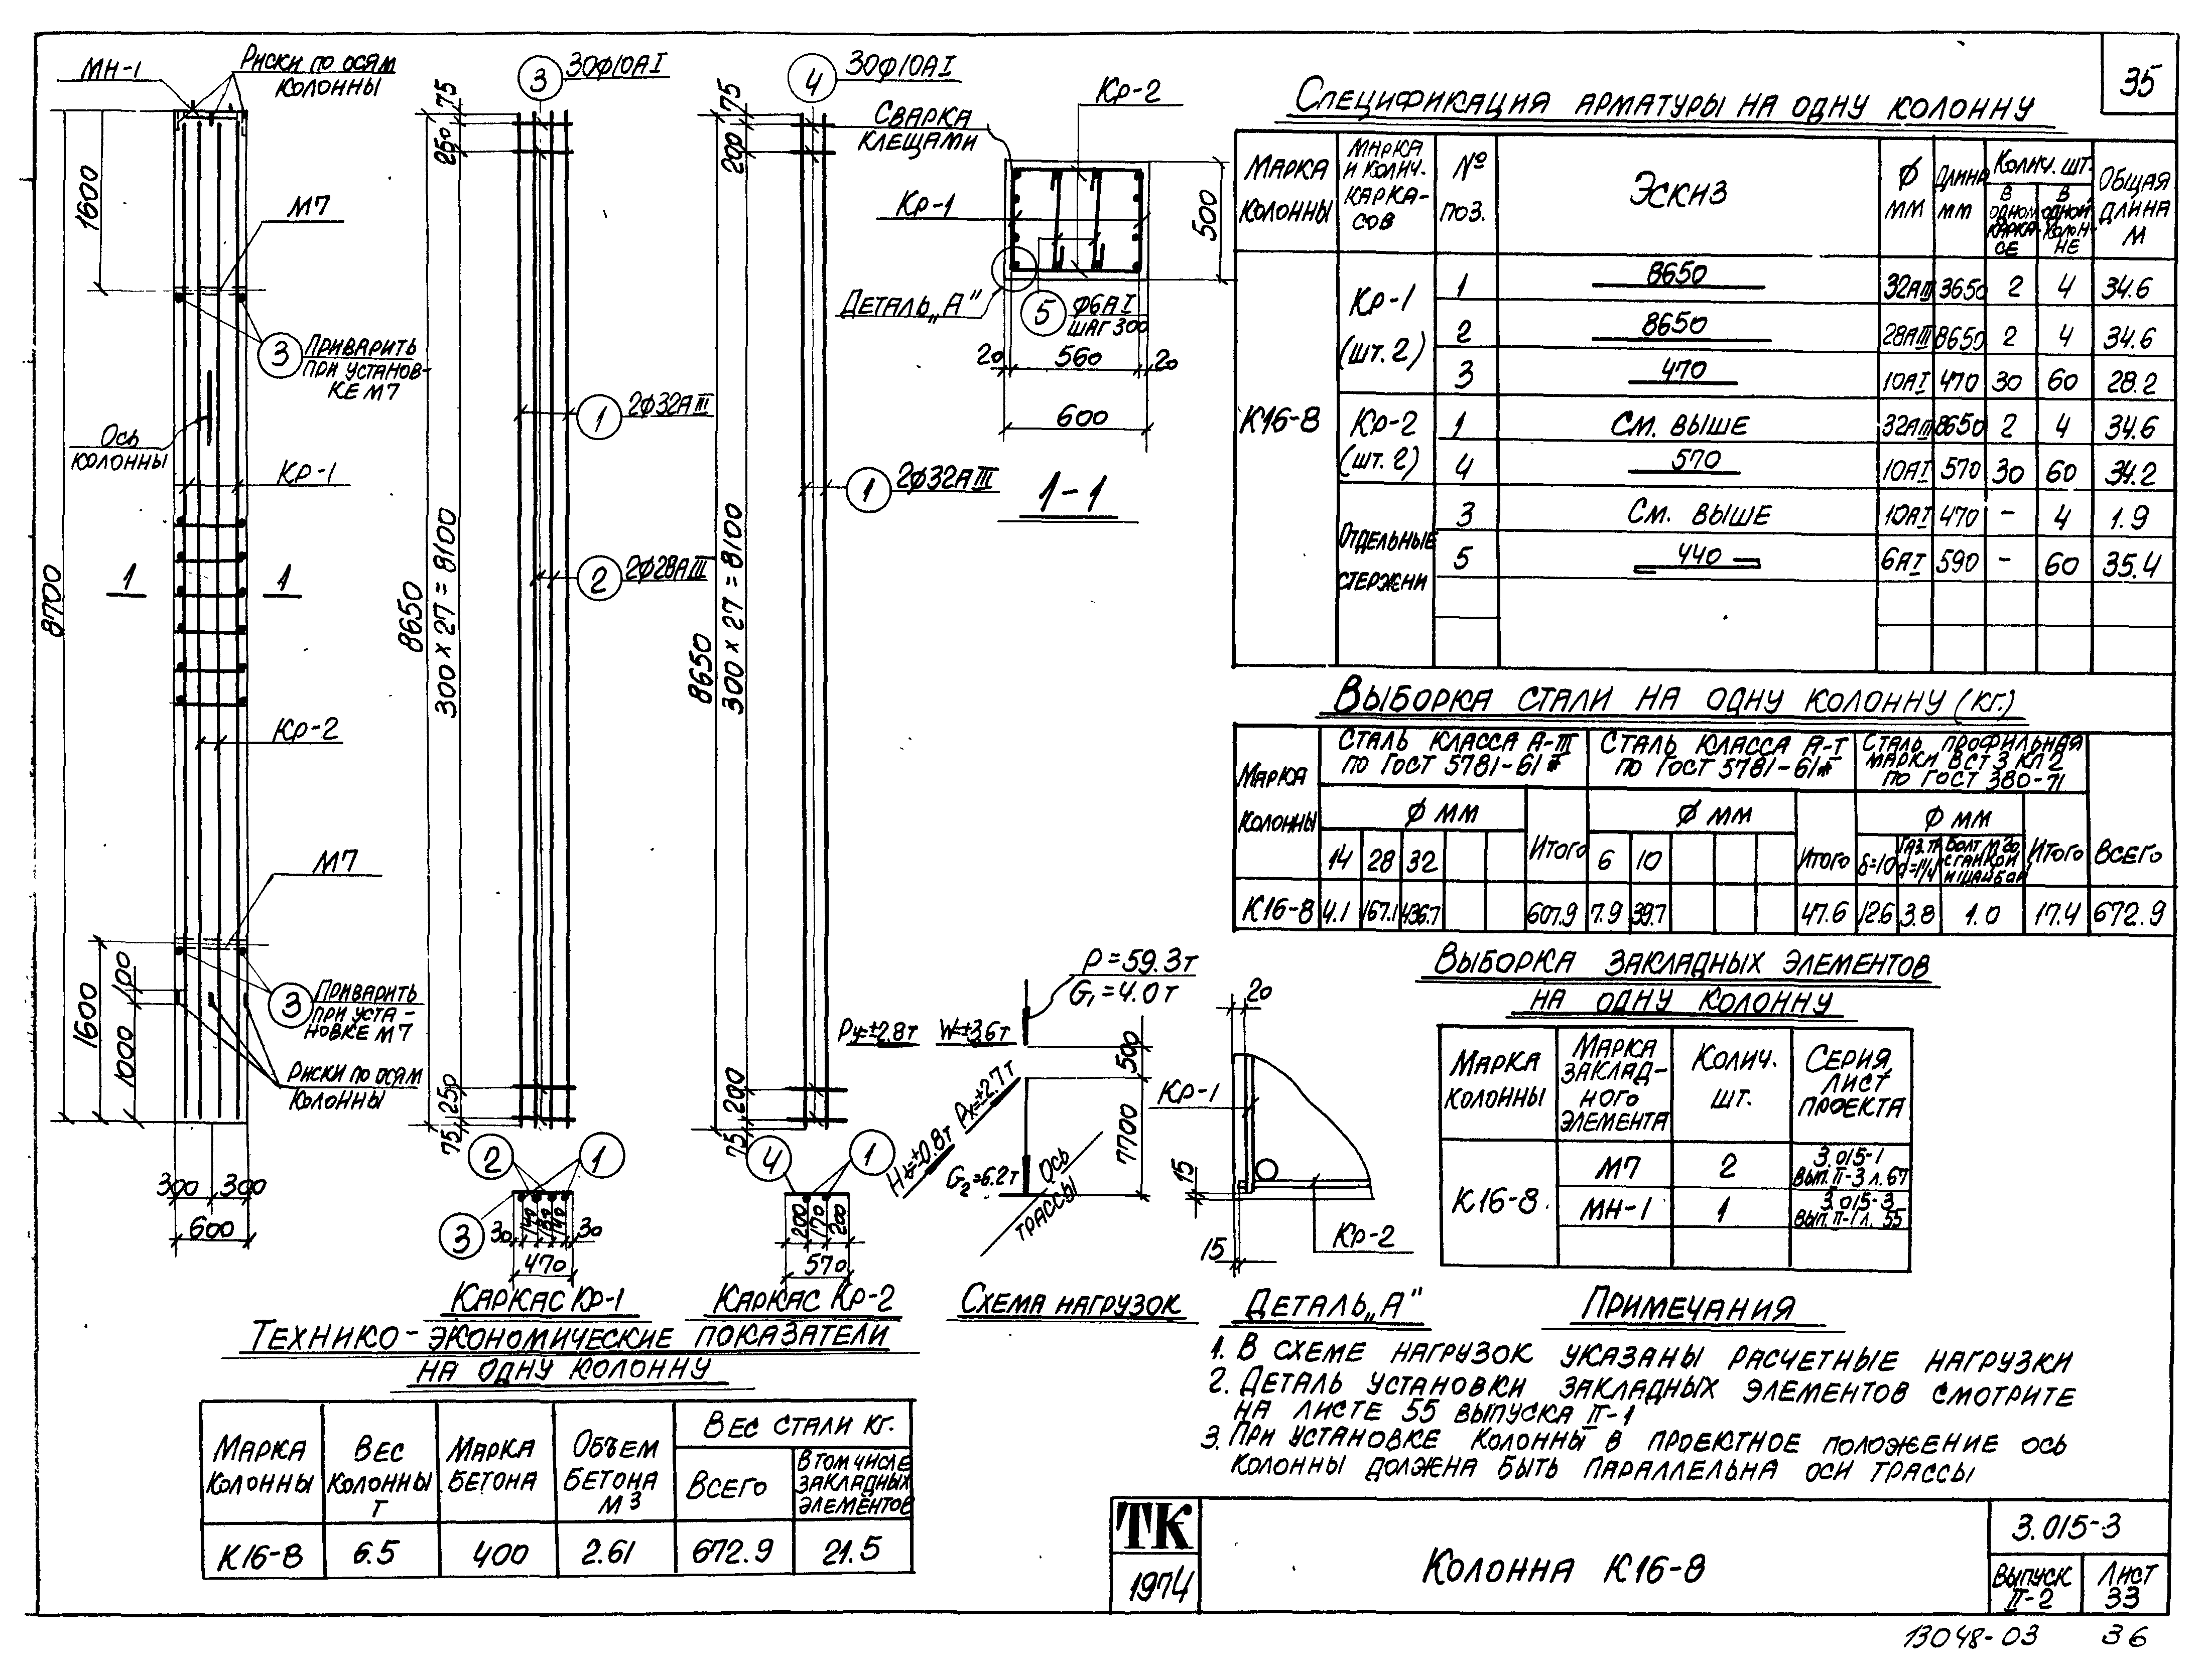 35
МН-1
Риски по осям
колонны
8700
1600
М7
3
Приварить
при установ-
ке М7
Ось
колонны
Кр-1
1
1
Кр-2
М7
3
Приварить
при уста-
новке М7
Риски по осям
колонны
1600
100
1000
300
300
600
3
30ф10АI
75
250
8650
300 х 27 = 8100
1
2ф32АIII
2
2ф28АIII
250
75
2
1
3
30
140
130
140
30
470
Каркас Кр-1
4
30ф10АI
75
200
8650
300 х 27 = 8100
1
2ф32АIII
200
75
4
1
200
170
200
570
Каркас Кр-2
Сварка
клещами
Кр-2
Кр-1
Деталь „А"
5
ф6АI
шаг 300
500
20
560
20
600
1-1
P=59.3т
G1=4.0т
Py=±2.8т
W=±3.6т
Px=±2.7т
G2=6.2т
Ось
трассы
500
7700
Схема нагрузок
20
Кр-1
15
15
Кр-2
Деталь „А"
Спецификация арматуры на одну колонну
Марка колонны
Марка и колич. каркасов
№ поз.
Эскиз
ф мм
Длина мм
Колич. шт.
в одном каркасе
в одной колонне
Общая длина м
К16-8
Кр-1 (шт. 2)
1 8650 32АIII 3650 2 4 34.6
2 8650 28АIII 8650 2 4 34.6
3 470 10АI 470 30 60 28.2
Кр-2 (шт. 2)
1 См. выше 32АIII 8650 2 4 34.6
4 570 10АI 570 30 60 34.2
Отдельные стержни
3 См. выше 10АI 470 - 4 1.9
5 440 6АI 590 - 60 35.4
Выборка стали на одну колонну (кг.)
Марка колонны
Сталь класса А-III
по ГОСТ 5781-61*
Сталь класса А-I
по ГОСТ 5781-61*
Сталь профильная
марки ВСт 3 кп 2
по ГОСТ 380-71
Всего
ф мм
Итого
ф мм
Итого
ф мм
Итого
14 28 32
6 10
δ=10
Газ. тр. d=1 1/4
Болт М20 с гайкой и шайбой
К16-8 4.1 167.1 436.7 607.9 7.9 39.7 47.6 12.6 3.8 1.0 17.4 672.9
Выборка закладных элементов
на одну колонну
Марка колонны
Марка закладного элемента
Колич. шт.
Серия, лист проекта
К16-8
М7 2 3.015-1 Вып. II-3 л. 67
МН-1 1 3.015-3 Вып. II-1 л. 55
Примечания
1. В схеме нагрузок указаны расчетные нагрузки
2. Деталь установки закладных элементов смотрите
на листе 55 выпуска II-1
3. При установке колонны в проектное положение ось
колонны должна быть параллельна оси трассы
Технико-экономические показатели
на одну колонну
Марка колонны
Вес колонны т
Марка бетона
Объем бетона м3
Вес стали кг.
Всего
В том числе закладных элементов
К16-8 6.5 400 2.61 672.9 21.5
ТК
1974
Колонна К16-8
3.015-3
Выпуск II-2
Лист 33
13048-03
36